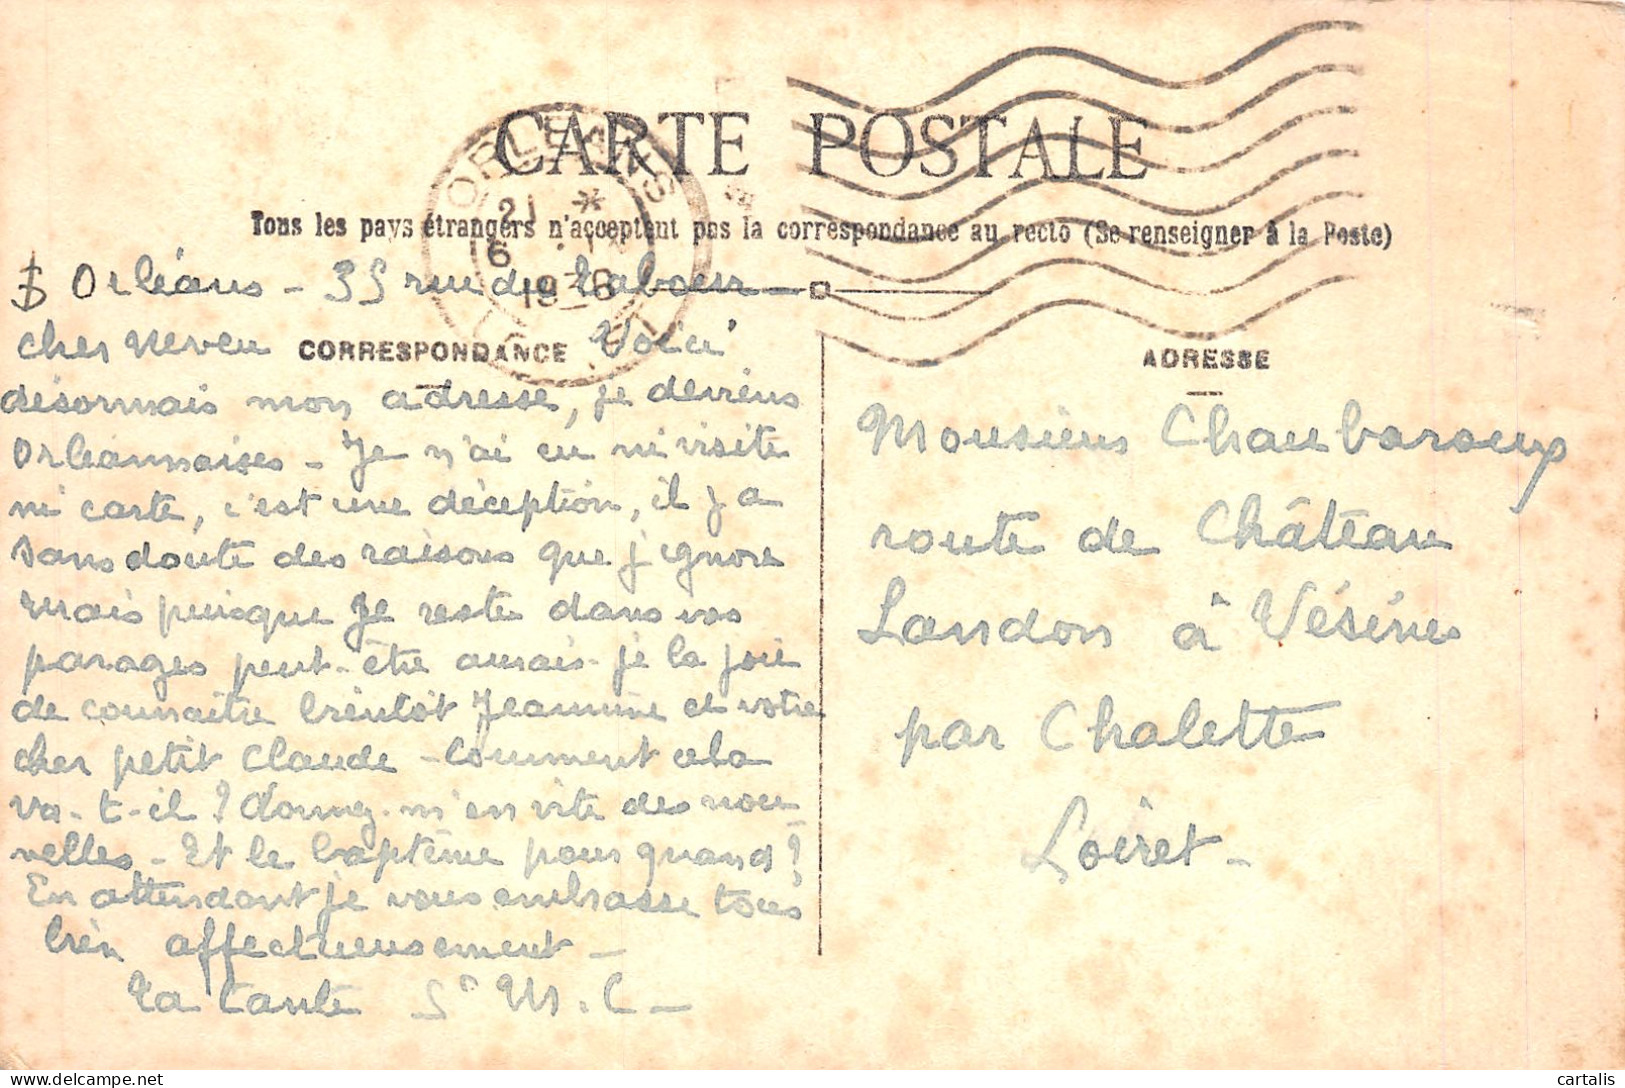 CARTE POSTALE
ORLEANS
21 *
6
Tous les pays étrangers n'acceptent pas la correspondance au recto (Se renseigner à la Poste)
Orléans - 35 rue du Tabour -
CORRESPONDANCE
cher neveu Voici
désormais mon adresse, je deviens
Orléannaise - Je n'ai eu ni visite
ni carte, c'est une déception, il y a
sans doute des raisons que j'ignore
mais puisque je reste dans vos
parages peut-être aurais-je la joie
de connaître bientôt Jeannine et votre
cher petit Claude - Comment cela
va-t-il ? donnez-m'en vite des nou
velles - Et le baptême pour quand ?
En attendant je vous embrasse tous
bien affectueusement -
Ta tante Sr M. C -
ADRESSE
Monsieur Chaubaroux
route de Château
Landon à Vésines
par Chalette
Loiret -
cartalis